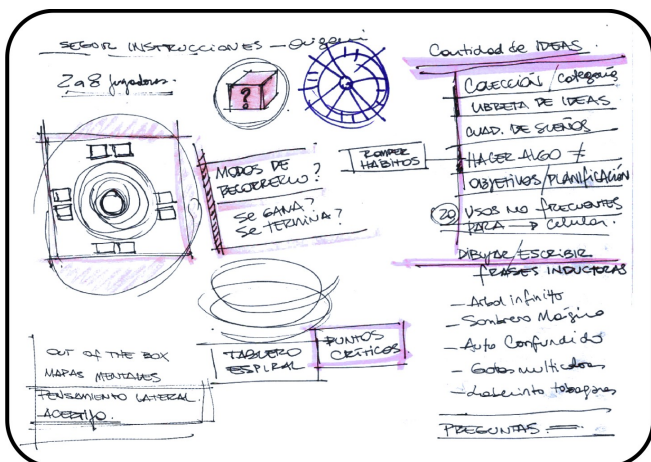 SEGUIR INSTRUCCIONES — Origami
2 a 8 jugadores.
?
MODOS DE
RECORRERLO?
SE GANA?
SE TERMINA?
ROMPER
HÁBITOS
TABLERO
ESPIRAL
PUNTOS
CRÍTICOS
OUT OF THE BOX
MAPAS MENTALES
PENSAMIENTO LATERAL
ACERTIJO.
Cantidad de IDEAS.
COLECCIÓN / Categoría
LIBRETA DE IDEAS
CUAD. DE SUEÑOS
HACER ALGO ≠
OBJETIVOS / PLANIFICACIÓN
20 USOS NO FRECUENTES
PARA → celular.
DIBUJAR / ESCRIBIR
FRASES INDUCTORAS
— Arbol infinito
— Sombrero Mágico
— Auto Confundido
— Gotas multicolores
— Laberinto toboganes
PREGUNTAS